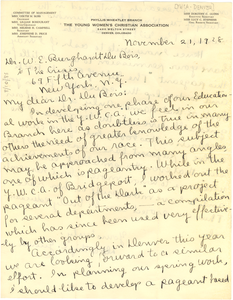 PHYLLIS WHEATLEY BRANCH
THE YOUNG WOMEN'S CHRISTIAN ASSOCIATION
DENVER, COLORADO
COMMITTEE OF MANAGEMENT
November 21, 1928
Dr. W. E. Burghardt Du Bois
% The Crisis
69 Fifth Avenue,
New York, N.Y.
My dear Dr. Du Bois:
In developing one phase of our education-
al work in the Y.W.C.A., we feel in our
Branch here as doubtless is true in many
others the need of greater knowledge of the
achievements of our race. This subject
may be approached from many angles
one of which is pageantry. While in the
Y.W.C.A. of Bridgeport, I worked out the
pageant "Out of the Dark" as a project
for several departments, — a compilation
which has since been used very effective-
ly by other groups.
Accordingly in Denver this year
we are looking forward to a similar
effort. In planning our spring work,
I should like to develop a pageant based